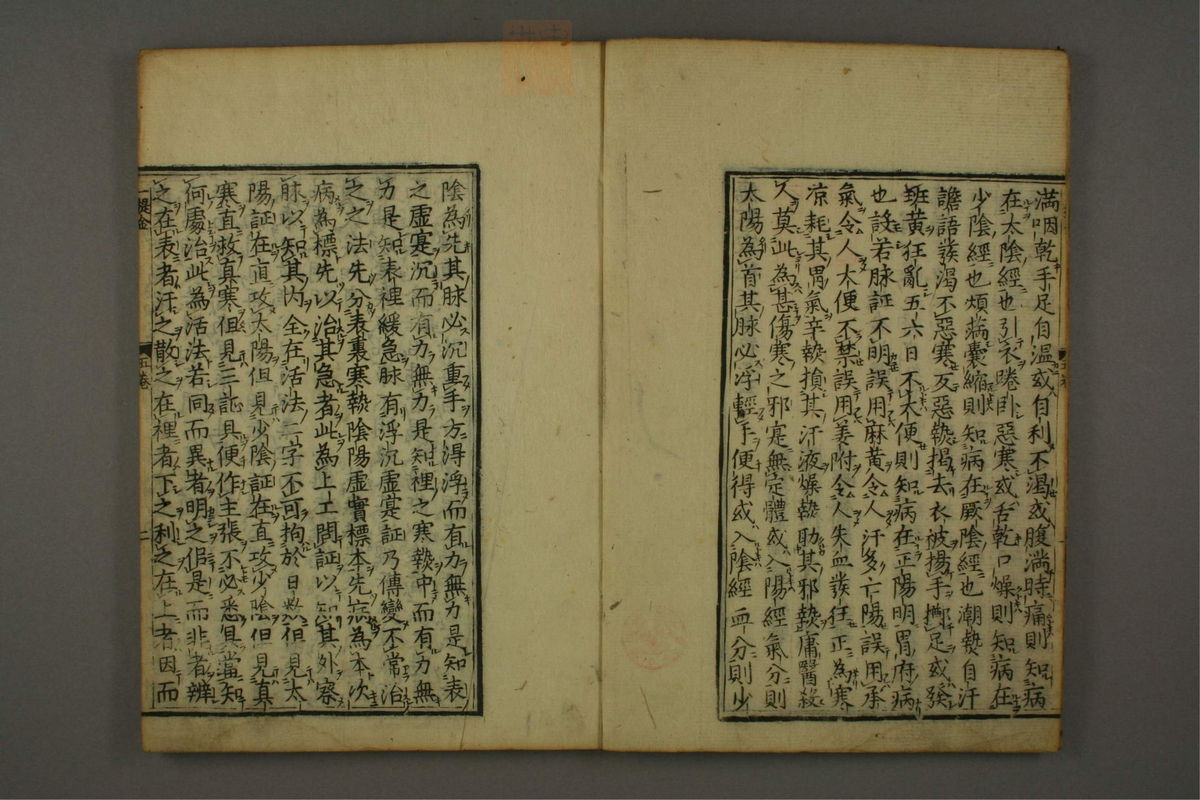 満咽乾手足自温或自利不渇或腹満時痛則知病
在太陰經也引衣踡卧惡寒或舌乾口燥則知病在
少陰經也煩滿囊縮則知病在厥陰經也潮熱自汗
譫語發渇不惡寒反惡熱揭去衣被揚手擲足或發
班黄狂亂五六日不大便則知病在正陽明胃府病
也設若脉証不明誤用麻黄令人汗多亡陽誤用承
氣令人大便不禁誤用姜附令人失血發狂正為寒
凉耗其胃氣辛熱損其汗液燥熱助其邪熱庸醫殺
人莫此為甚傷寒之邪寔無定體或入陽經氣分則
太陽為首其脉必浮輕手便得或入陰經血分則少
陰為先其脉必沉重手方得浮而有力無力是知表
之虚寔沉而有力無力是知裡之寒熱中而有力無
力是知表裡緩急脉有浮沉虚寔証乃傳變不常治
之之法先分表裏寒熱陰陽虚實標本先病為本次
病為標先以治其急者此為上工問証以知其外察
脉以知其内全在活法二字不可拘於日數但見太
陽証在直攻太陽但見少陰証在直攻少陰但見真
寒直救真寒但見三証具便作主張不必悉具當知
何處治此為活法若同而異者明之佀是而非者辨
之在表者汗之散之在裡者下之利之在上者因而
一提金
五卷
二